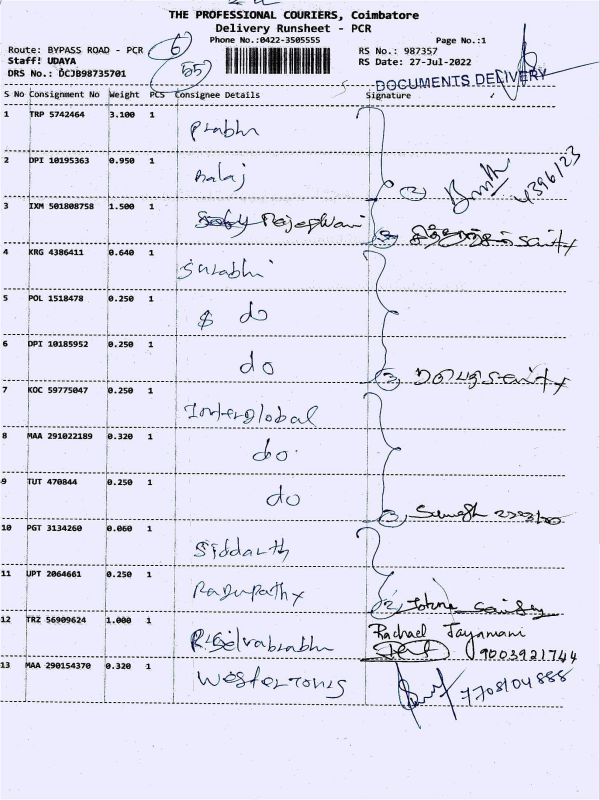 THE PROFESSIONAL COURIERS, Coimbatore
Delivery Runsheet - PCR
Phone No.:0422-3505555
Page No.:1
Route: BYPASS ROAD - PCR
6
RS No.: 987357
Staff! UDAYA
55
RS Date: 27-Jul-2022
DRS No.: DCJB98735701
DOCUMENTS DELIVERY
S No Consignment No Weight PCS Consignee Details Signature
1 TRP 5742464 3.100 1 Prabhu
2 DPI 10195363 0.950 1 Balaj
3 IXM 501808758 1.500 1 Rajeswari
4 KRG 4386411 0.640 1 Surabhi
5 POL 1518478 0.250 1 do
6 DPI 10185952 0.250 1 do
7 KOC 59775047 0.250 1 Interglobal
8 MAA 291022189 0.320 1 do
9 TUT 470844 0.250 1 do
10 PGT 3134260 0.060 1 Siddarth
11 UPT 2064661 0.250 1 Ragupathy
12 TRZ 56909624 1.000 1 R. Selvaprabhu Rachael Jayamani
9003921744
13 MAA 290154370 0.320 1 7708104888